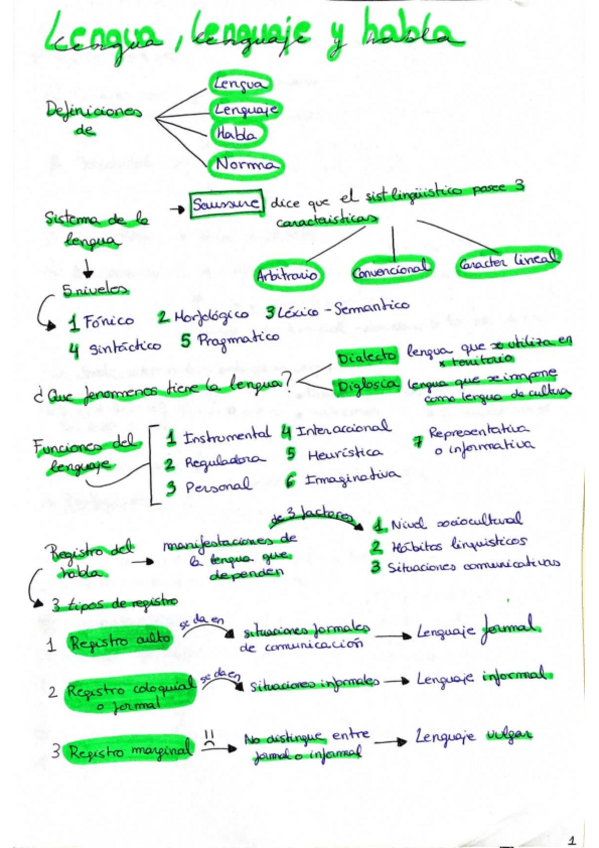 Lengua, lenguaje y habla
Definiciones de
Lengua
Lenguaje
Habla
Norma
Sistema de la lengua
Saussure dice que el sist lingüistico posee 3
caracteristicas
Arbitrario Convencional Carácter lineal
5 niveles
1 Fónico 2 Morfológico 3 Léxico - Semantico
4 Sintáctico 5 Pragmatico
¿Que fenomenos tiene la lengua?
Dialecto lengua que se utiliza en
x territorio
Diglosia lengua que se impone
como lengua de cultura
Funciones del
lenguaje
1 Instrumental 4 Interaccional 7 Representativa
o informativa
2 Reguladora 5 Heurística
3 Personal 6 Imaginativa
Registro del
habla
manifestaciones de
la lengua que
dependen
de 3 factores
1 Nivel sociocultural
2 Hábitos linguisticos
3 Situaciones comunicativas
3 tipos de registro
1 Registro culto se da en situaciones formales
de comunicación Lenguaje formal
2 Registro coloquial
o formal se da en Situaciones informales Lenguaje informal
3 Registro marginal !! No distingue entre
formal o informal Lenguaje vulgar
1